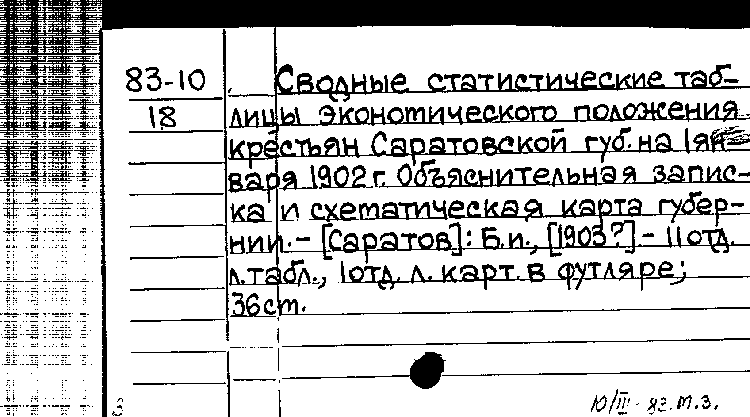 83-10 Сводные статистические таб-
18 лицы экономического положения
крестьян Саратовской губ. на 1 ян-
варя 1902 г. Объяснительная запис-
ка и схематическая карта губер-
нии. - [Саратов]: Б.и., [1903?] - 11 отд.
л. табл., 1 отд. л. карт. в футляре;
36 см.
10/III - 83. М.З.